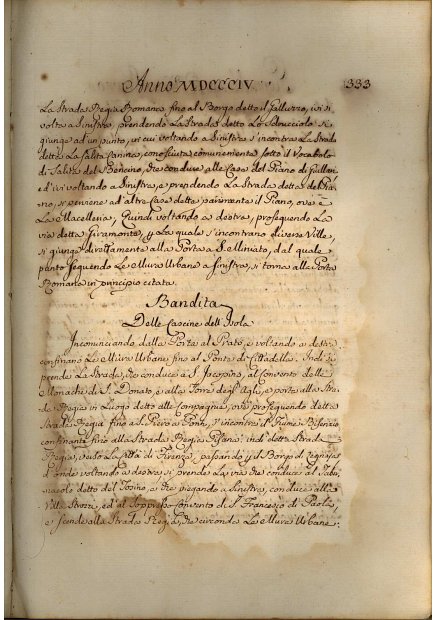 Anno MDCCCIV. 333
La Strada Regia Romana fino al Borgo detto il Galluzzo, ivi si
volta a Sinistra prendendo La Strada detta Lo Sdrucciolo si
giunge ad un punto, in cui voltando a Sinistra s'incontra La Strada
detta La Salita Canina, conosciuta comunemente sotto il Vocabolo
di Salita del Bencino, che conduce alle Case del Piano di Giullari
e d'ivi voltando a Sinistra, e prendendo La Strada detta del Pia-
no, si perviene ad altre Case dette parimente il Piano, ove è
La Macelleria, Quindi voltando a destra, proseguendo La
via detta Giramonte, p La quale s'incontrano diverse Ville,
si giunge direttamente alla Porta a S. Miniato, dal quale
punto seguendo Le Mura Urbane a sinistra, si torna alla Porta
Romana in principio citata.
Bandita
Delle Cascine dell'Isola
Incominciando dalla Porta al Prato, e voltando a destra
confinano Le Mura Urbane fino al Ponte di Cittadella. Indi si
prende La Strada, che conduce a S. Jacopino, al Convento delle
Monache di S. Donato, e alla Torre degl'Agli, e porta alla Stra-
da Regia in Luogo detto alle Compagnie, ove proseguendo detta
Strada Regia fino a S. Piero a Ponti, s'incontra il Fiume Bisenzio,
confinante fino alla Strada Regia Pisana; indi detta Strada
Regia, verso La Città di Firenze, passando p il Borgo di Legnaja
d'onde voltando a destra si prende La via che conduce al Taber-
nacolo detto del Pesino, e che piegando a Sinistra, conduce alla
Villa Strozzi, ed al Soppresso Convento di S. Francesco di Paola,
e scende alla Strada Regia, che circonda Le Mura Urbane: